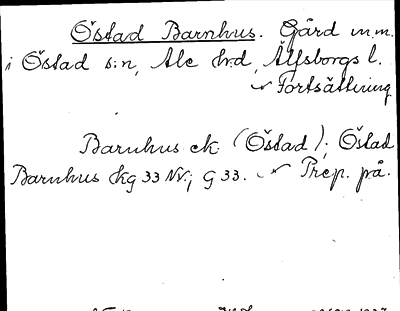 Östad Barnhus. Gård m.m.
i Östad s:n, Ale hd, Älfsborgs l.
✓ Fortsättning
Barnhus ek (Östad); Östad
Barnhus Hkg 33 NV; G 33. ✓ Prep. på.